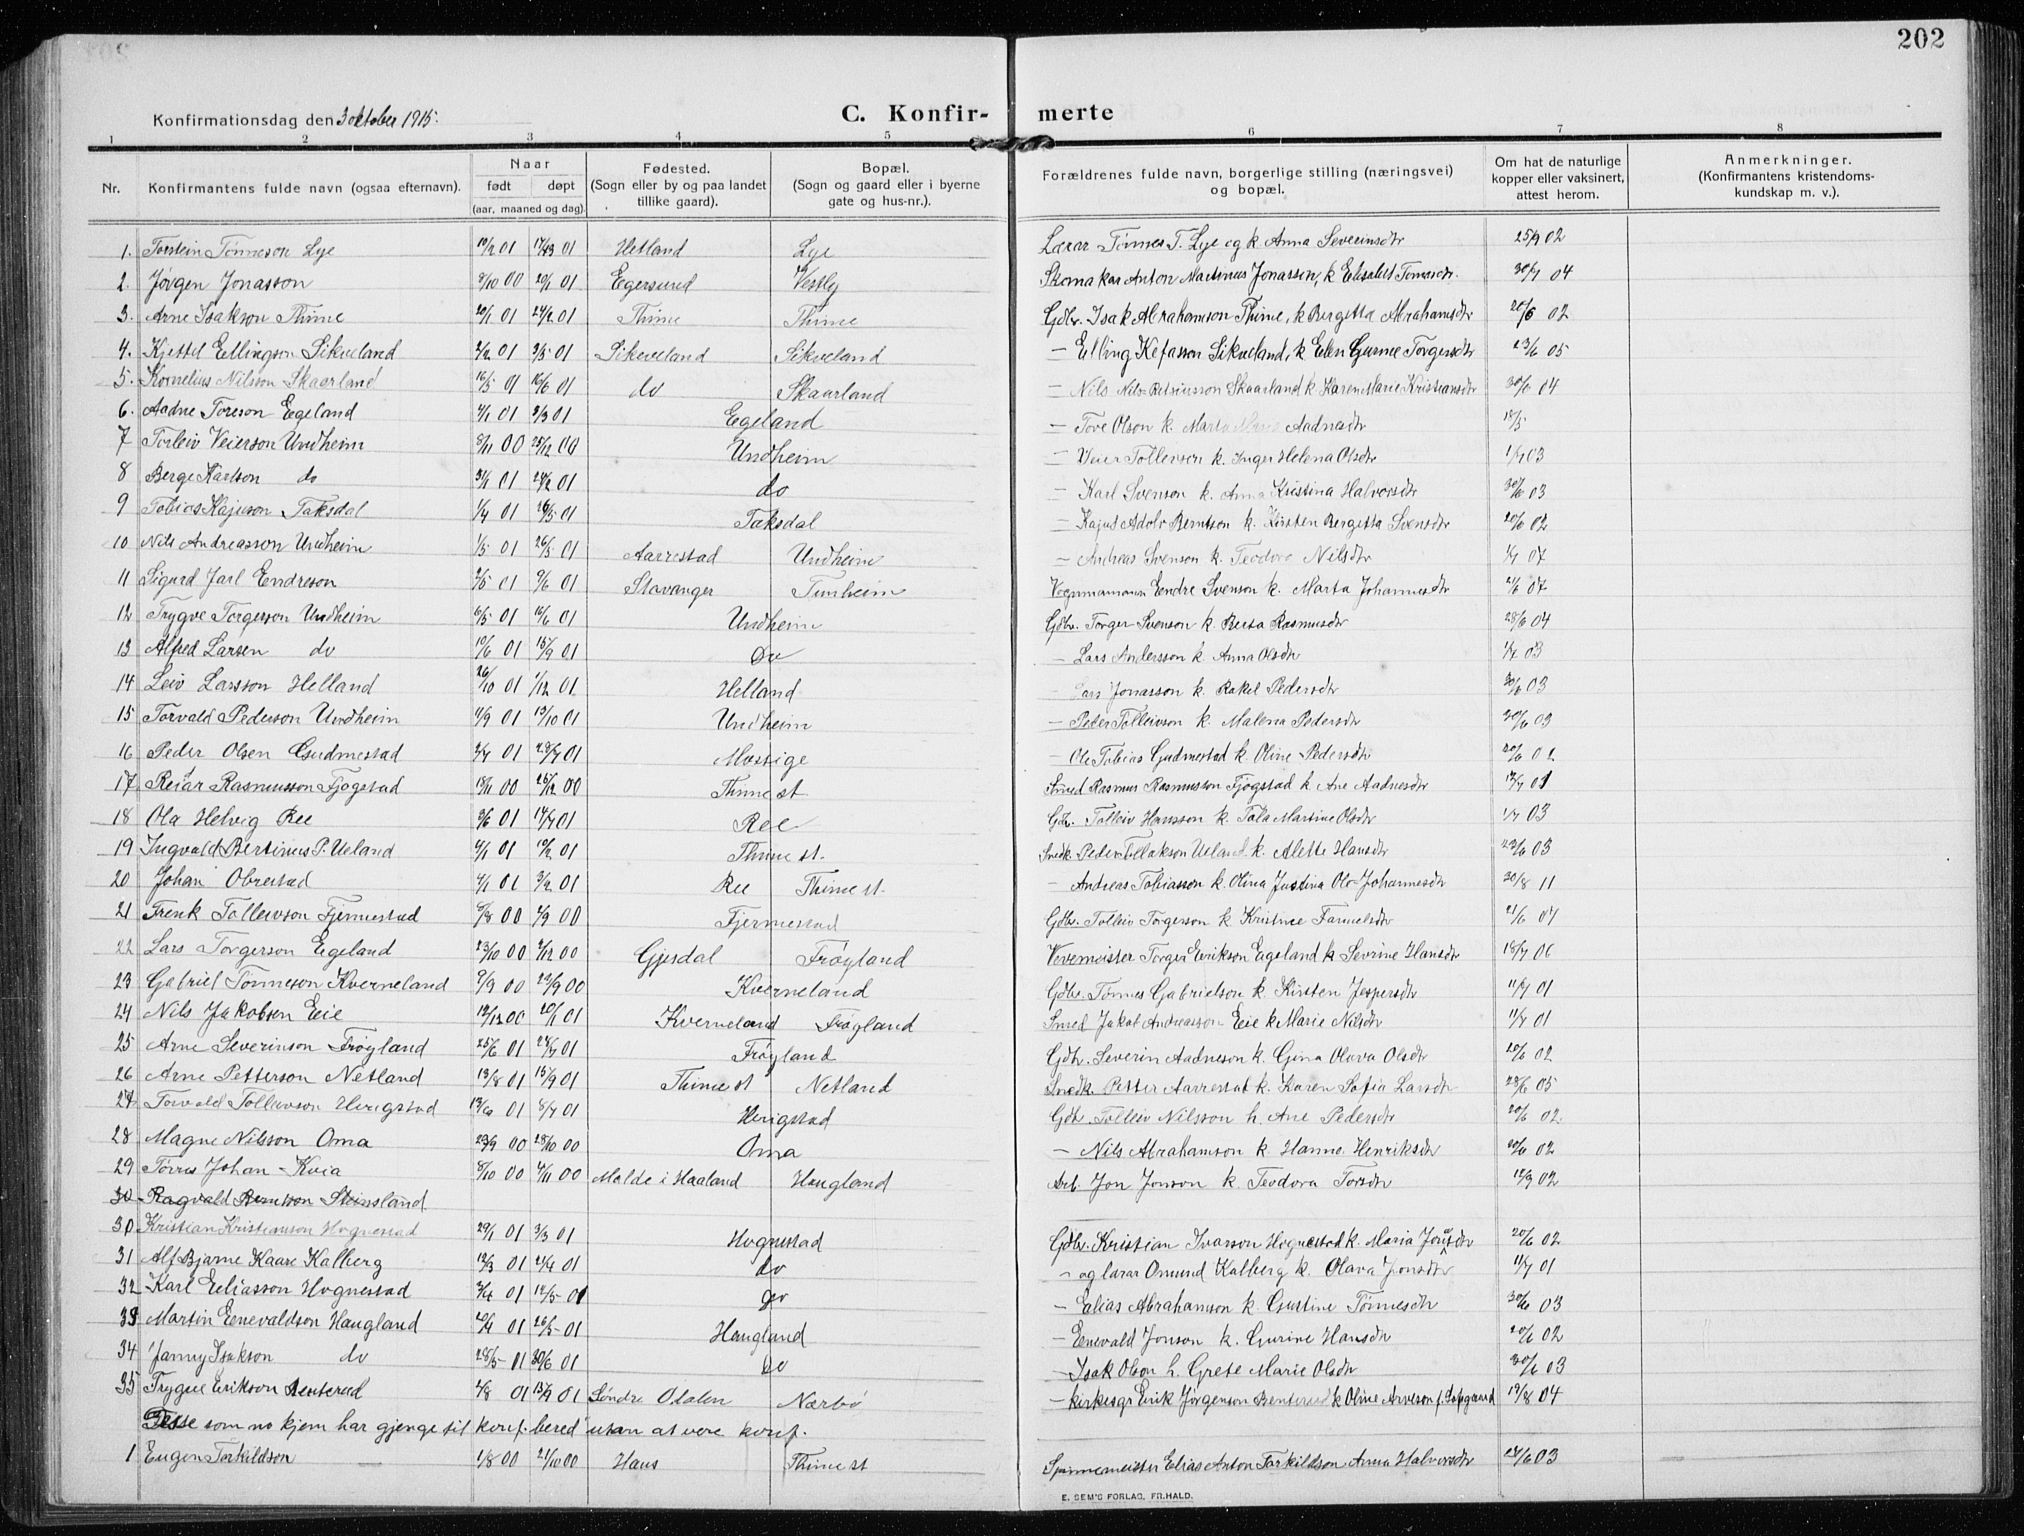 202
Konfirmationsdag den 3 oktober 1915. C. Konfir- merte
1 2 3 4 5 6 7 8
Nr. Konfirmantens fulde navn (ogsaa efternavn). Naar født døpt (aar, maaned og dag). Fødested. (Sogn eller by og paa landet tillike gaard). Bopæl. (Sogn og gaard eller i byerne gate og hus-nr.). Forældrenes fulde navn, borgerlige stilling (næringsvei) og bopæl. Om hat de naturlige kopper eller vaksinert, attest herom. Anmerkninger. (Konfirmantens kristendoms- kundskap m. v.).
1. Torstein Tønneson Lye 01 01 Hetland Lye Lærar Tønnes T. Lye og k. Anna Severinsdtr 25/9 02
2. Jørgen Jonasson 8/10 00 20/1 01 Egersund Vestly Skomakar Anton Martinius Jonasson, k Elisabet Tomasdtr. 04
3. Arne Isakson Thime 20/1 01 24/2 01 Thime Thime Gdbr. Isak Abrahamson Thime, k Bergitta Abrahamsdtr 20/6 02
4. Kjettel Ellingson Sikveland 2/2 01 3/5 01 Sikveland Sikveland – Elling Kefasson Sikveland, k. Elen Gurine Torgersdtr 23/6 05
5. Kornelius Nilson Skaarland 16/5 01 16/6 01 do Skaarland – Nils Skaarland k Karen Marie Kristiansdtr 30/6 04
6. Aadne Toreson Egeland 01 3/3 01 Egeland – Tore Olson k. Marta Aadnesdtr 18/5
7 Torleiv Veierson Undheim 8/11 00 25/12 00 Undheim – Veier Tollevson k. Inger Helena Olsdtr 1/7 03
8 Berge Karlson do 3/1 01 24/2 01 do – Karl Svenson k. Anna Kristina Halvorsdtr 30/6 03
9 Tobias Kajuson Taksdal 1/4 01 26/5 01 Taksdal – Kajus Adolv Berntson k. Kirsten Bergitta Svensdtr 20/6 02
10 Nils Andreasson Undheim 1/5 01 26/5 01 Aarrestad Undheim – Andreas Svenson k. Teodora Nilsdtr 1/7 07
11 Sigurd Jarl Endreson 2/5 01 9/6 01 Stavanger Tunheim Vognmann Endre Svenson k. Marta Johannesdtr 07
12 Trygve Torgerson Undheim 6/5 01 16/6 01 Undheim Gdbr. Torger Svenson k. Berta Rasmusdtr 28/6 04
13 Alfred Larsen do 10/6 01 15/9 01 do – Lars Andersson k. Anna Olsdtr 1/7 03
14 Leiv Larsson Helland 26/10 01 1/12 01 Helland – Lars Jonasson k. Rakel Pedersdtr 30/6 03
15 Torvald Pederson Undheim 11/9 01 13/10 01 Undheim – Peder Tolleivson k. Malena Pedersdtr 30/6 03
16 Peder Olsen Gudmestad 2/7 01 28/7 01 Mossige – Ole Tobias Gudmestad k. Oline Pedersdtr 20/6 02
17 Reiar Rasmusson Fjogstad 18/11 00 26/12 00 Thime st. Smed Rasmus Rasmusson Fjogstad k Ane Aadnesdtr 12/7 01
18 Ola Helvig Ree 3/6 01 14/7 01 Ree Gdbr. Tolleiv Hansson k. Tala Martine Olsdtr 1/7 03
19 Ingvald Bertinus P. Ueland 6/1 01 10/2 01 Thime st. Snedk. Peder Ueland k. Alette Hansdtr 23/6 03
20 Johan Obrestad 4/1 01 3/2 01 Ree Thime st. – Andreas Tobiasson k. Olina Justina Ols-Johannesdtr 30/8 11
21 Frenk Tolleivson Fjermestad 5/8 00 4/9 00 Fjermestad Gdbr. Tolleiv Torgerson k. Kristine 21/6 07
22 Lars Torgerson Egeland 23/10 00 2/12 00 Gjesdal Frøyland Vevemeister Torger Eirikson Egeland k Sevrine Hansdtr 18/7 06
23 Gabriel Tønneson Kverneland 9/9 00 29/9 00 Kverneland Gdbr. Tønnes Gabrielson k. Kirsten Jespersdtr 11/7 01
24 Nils Jakobsen Eie 12/12 00 20/1 01 Kverneland Frøyland Smed Jakob Andreasson Eie k Marie Nilsdtr 11/7 01
25 Arne Severinson Frøyland 25/6 01 28/7 01 Frøyland Gdbr. Severin Aadneson k. Gina Olava Olsdtr 20/6 02
26 Arne Petterson Netland 13/8 01 15/9 01 Thime st Netland Snedk. Petter Aarrestad k. Karen Sofia Larsdtr 28/6 05
27 Torvald Tolleivson Herigstad 01 8/7 01 Herigstad Gdbr. Tolleiv Nilsson k. Ane Pedersdtr 20/6 02
28 Magne Nilsson Oma 23/9 00 28/10 00 Oma – Nils Abrahamson k. Hanne Henriksdtr 20/6 02
29 Tørres Johan Kvia 8/10 00 4/11 00 Molde i Haaland Haugland Arb. Jon Jonson k. Teodora Torsdtr 12/9 02
30 Ragvald Steinsland
30 Kristian Kristianson Hognestad 29/1 01 3/3 01 Hognestad Gdbr. Kristian Ivarson Hognestad k. Maria 20/6 02
31 Alf Bjarne Kaare Kalberg 12/3 01 21/4 01 do – og lærar Omund Kalberg k. Olava Jonsdtr 11/7 01
32 Karl Eeliasson Hognestad 3/4 01 12/5 01 do – Eelias Abrahamson k. Gustine Tønnesdtr 30/6 03
33 Martin Eenevaldson Haugland 20/4 01 26/5 01 Haugland – Eenevald Jonson k. Gurine Hansdtr 20/6 02
34 Janny Isakson do 28/5 01 30/6 01 do – Isak Olson k. Grete Marie Olsdtr 30/6 03
35 Trygve Erikson 2/8 01 01 Søndre Odalen Nærbø – kirkesgr Erik Jørgenson k Oline Arneson f. 19/8 04
Desse som no kjem har gjenge til konf. bered utan at vere konf.
1 Eugen Torkildson 1/8 00 21/10 00 Haus Thime st Spinnemeister Elias Anton Torkildson Anna Halvorsdtr 03
E. SEM'S FORLAG, FR.HALD.